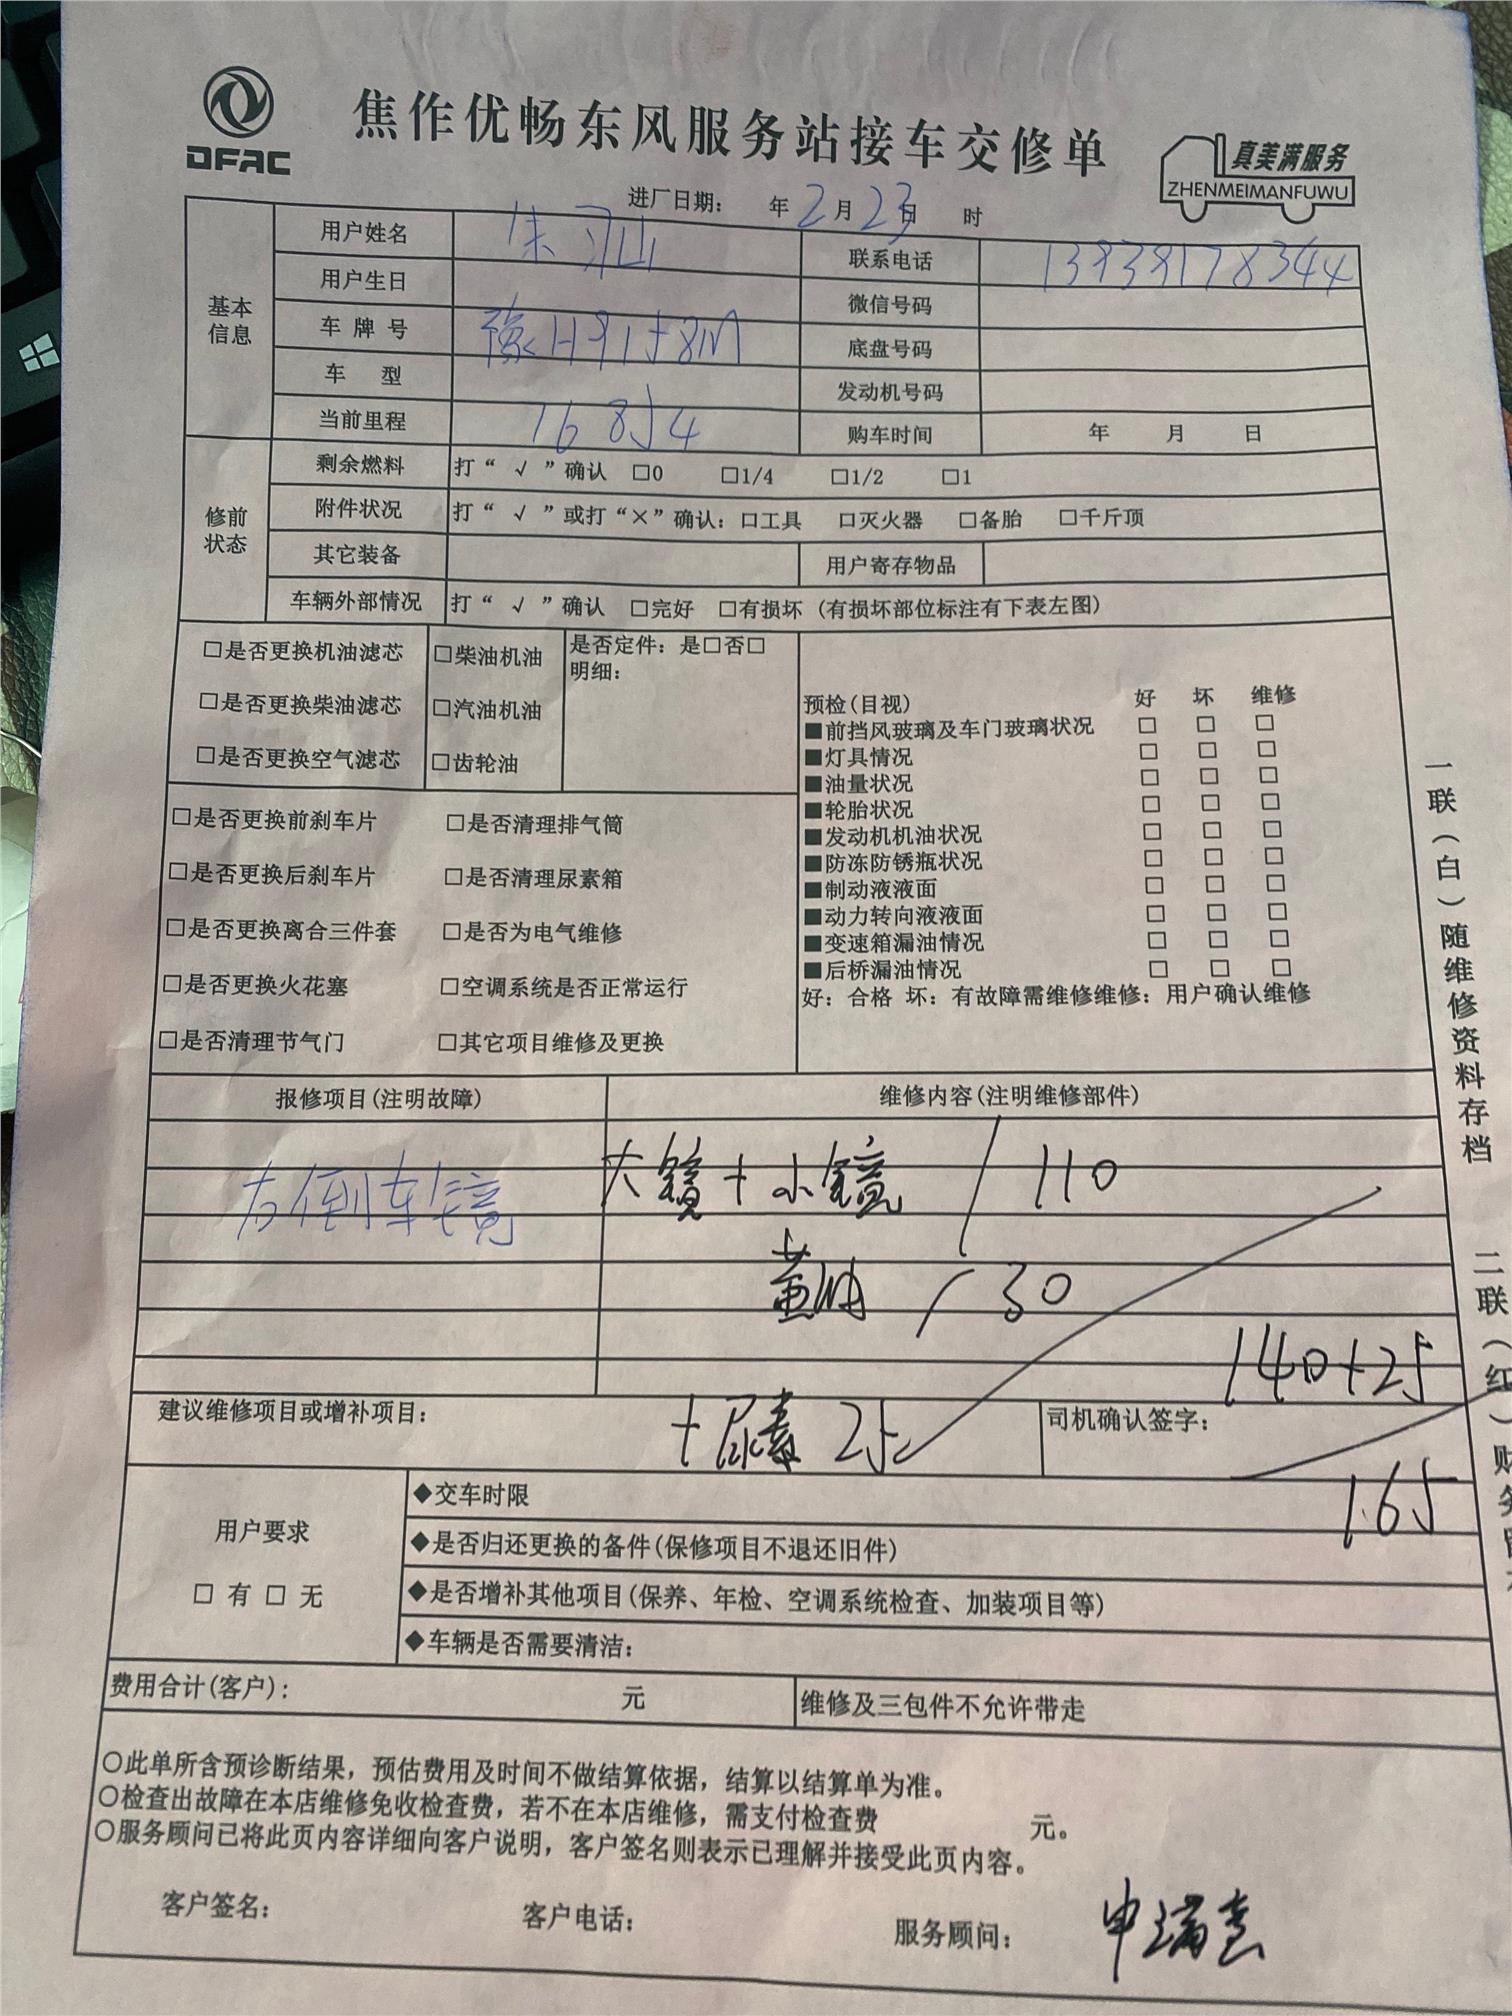 DFAC
焦作优畅东风服务站接车交修单
真美满服务
ZHENMEIMANFUWU
进厂日期: 年 2 月 23 日 时
基本信息
用户姓名 联系电话 13939178344
用户生日 微信号码
车牌号 豫H9158M 底盘号码
车 型 发动机号码
当前里程 76854 购车时间 年 月 日
修前状态
剩余燃料 打“√”确认 □0 □1/4 □1/2 □1
附件状况 打“√”或打“×”确认: □工具 □灭火器 □备胎 □千斤顶
其它装备 用户寄存物品
车辆外部情况 打“√”确认 □完好 □有损坏 (有损坏部位标注有下表左图)
□是否更换机油滤芯 □柴油机油 是否定件: 是□否□
明细:
□是否更换柴油滤芯 □汽油机油
□是否更换空气滤芯 □齿轮油
□是否更换前刹车片 □是否清理排气筒
□是否更换后刹车片 □是否清理尿素箱
□是否更换离合三件套 □是否为电气维修
□是否更换火花塞 □空调系统是否正常运行
□是否清理节气门 □其它项目维修及更换
预检(目视) 好 坏 维修
■前挡风玻璃及车门玻璃状况 □ □ □
■灯具情况 □ □ □
■油量状况 □ □ □
■轮胎状况 □ □ □
■发动机机油状况 □ □ □
■防冻防锈瓶状况 □ □ □
■制动液液面 □ □ □
■动力转向液液面 □ □ □
■变速箱漏油情况 □ □ □
■后桥漏油情况 □ □ □
好: 合格 坏: 有故障需维修维修: 用户确认维修
报修项目(注明故障) 维修内容(注明维修部件)
右倒车镜 大镜+小镜 / 110
黄油 / 30
140+25
建议维修项目或增补项目: +尿素 25 司机确认签字:
165
用户要求
□ 有 □ 无
◆交车时限
◆是否归还更换的备件(保修项目不退还旧件)
◆是否增补其他项目(保养、年检、空调系统检查、加装项目等)
◆车辆是否需要清洁:
费用合计(客户): 元 维修及三包件不允许带走
○此单所含预诊断结果, 预估费用及时间不做结算依据, 结算以结算单为准。
○检查出故障在本店维修免收检查费, 若不在本店维修, 需支付检查费 元。
○服务顾问已将此页内容详细向客户说明, 客户签名则表示已理解并接受此页内容。
客户签名: 客户电话: 服务顾问:
一联(白)随维修资料存档
二联(红)财务